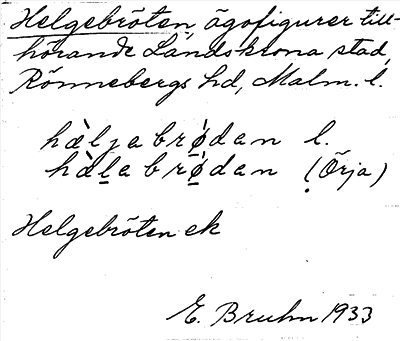 Helgebröten, ägofigurer till-
hörande Landskrona stad,
Rönnebergs hd, Malm. l.
hæ̀ljabrǿdan l.
hàlabrǿ̠dan (Örja)
Helgebröten ek
E. Bruhn 1933